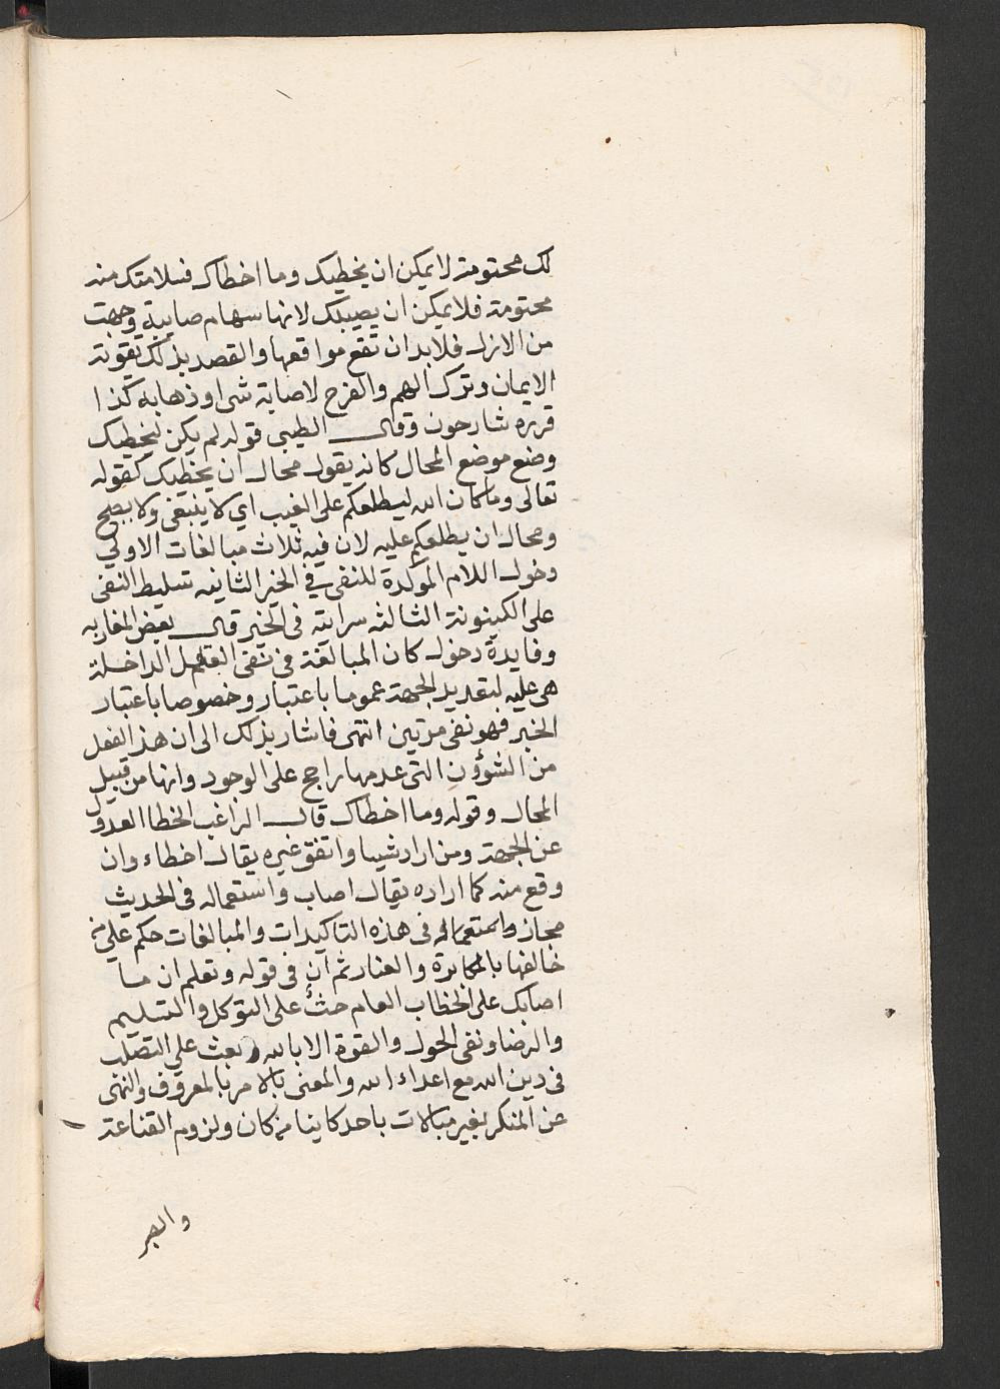 لك محتومة لا يمكن ان يخطيك وما اخطاك فسلامتك منه
محتومة فلا يمكن ان يصيبك لانها سهام صايبة وجهت
من الازل فلا بد ان تقع مواقعها والقصد بذلك تقوية
الايمان وترك الهم والفرح لاصابة شى او ذهابه كذا
قرره شارحون وقال الطيبى قوله لم يكن ليخطيك
وضع موضع المحال كانه يقول محال ان يخطيك كقوله
تعالى وما كان الله ليطلعكم على الغيب اي لا ينبغى ولا يصح
ومحال ان يطلعكم عليه لان فيه ثلاث مبالغات الاولي
دخول اللام الموكدة للنفى في الخبر الثانيه تسليط النفى
على الكينونة الثالثه سرايته فى الخبر قال بعض المغاربه
وفايدة دخول كان المبالغة فى نفى الفعل الداخلة
هى عليه لتعديد الجهة عموما باعتبار وخصوصا باعتبار
الخبر فهو نفى مرتين انتهى فاشار بذلك الى ان هذ الفعل
من الشوؤن التى عدمها راجح على الوجود وانها من قبيل
المحال وقوله وما اخطاك قال الراغب الخطا العدول
عن الجهة ومن اراد شييا واتفق غيره يقال اخطاء وان
وقع منه كما اراده يقال اصاب واستعماله فى الحديث
مجاز واستعماله فى هذه التاكيدات والمبالغات حكم على من
خالفها بالمكابرة والعناد ثم ان فى قوله وتعلم ان ما
اصابك على الخطاب العام حث على التوكل والتسليم
والرضا ونفى الحول والقوة الا بالله وبعث على التصلب
فى دين الله مع اعداء الله والمعنى بالامر بالمعروف والنهى
عن المنكر بغير مبالات باحد كاينا من كان ولزوم القناعة
والصبر